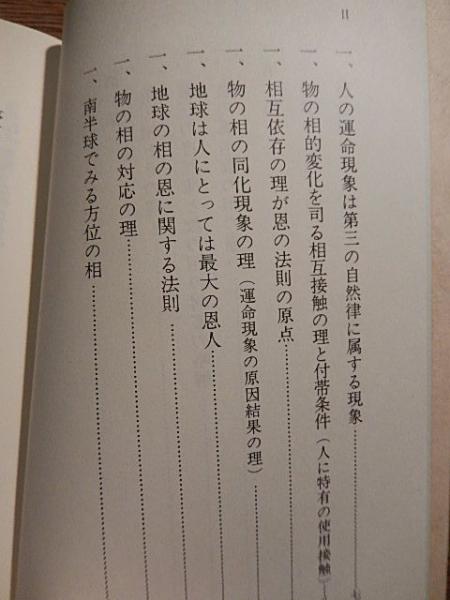 11
一、人の運命現象は第三の自然律に属する現象……………
一、物の相的変化を司る相互接触の理と付帯条件（人に特有の使用接触）…
一、相互依存の理が恩の法則の原点……………
一、物の相の同化現象の理（運命現象の原因結果の理）……………
一、地球は人にとっては最大の恩人……………
一、地球の相の恩に関する法則……………
一、物の相の対応の理……………
一、南半球でみる方位の相……………